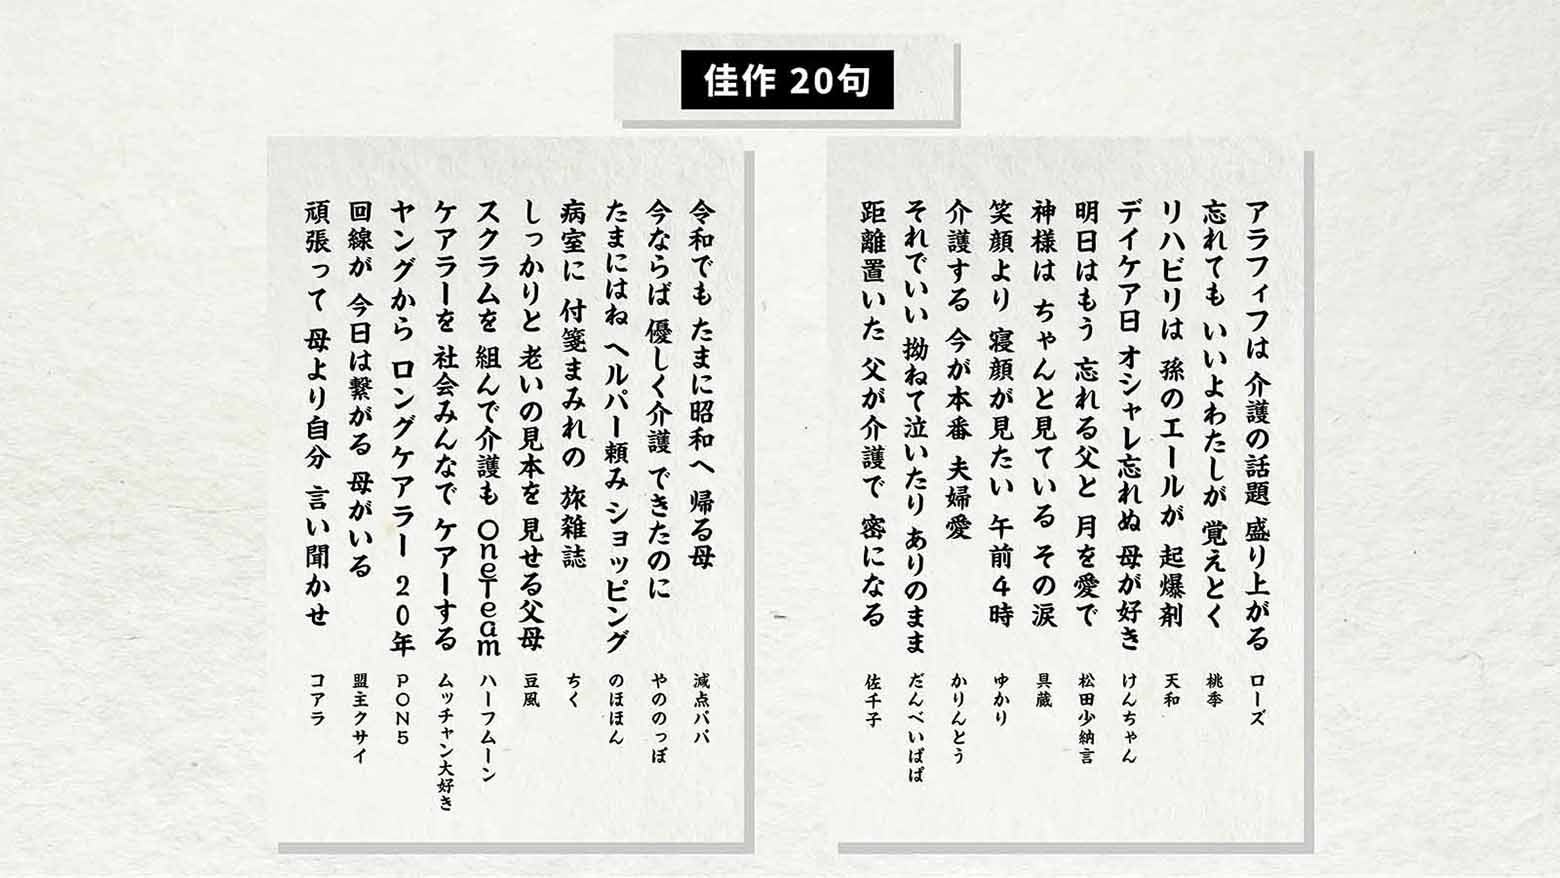 佳作 20句
アラフィフは 介護の話題 盛り上がる ローズ
忘れても いいよわたしが 覚えとく 桃李
リハビリは 孫のエールが 起爆剤 天和
デイケア日 オシャレ忘れぬ 母が好き けんちゃん
明日はもう 忘れる父と 月を愛で 松田少納言
神様は ちゃんと見ている その涙 具蔵
笑顔より 寝顔が見たい 午前4時 ゆかり
介護する 今が本番 夫婦愛 かりんとう
それでいい 拗ねて泣いたり ありのまま だんべいぱぱ
距離置いた 父が介護で 密になる 佐千子
令和でも たまに昭和へ 帰る母 減点パパ
今ならば 優しく介護 できたのに やののっぽ
たまにはね ヘルパー頼み ショッピング のほほん
病室に 付箋まみれの 旅雑誌 ちく
しっかりと 老いの見本を 見せる父母 豆風
スクラムを 組んで介護も OneTeam ハーフムーン
ケアラーを 社会みんなで ケアーする ムッチャン大好き
ヤングから ロングケアラー 20年 PON5
回線が 今日は繋がる 母がいる 盟主クサイ
頑張って 母より自分 言い聞かせ コアラ